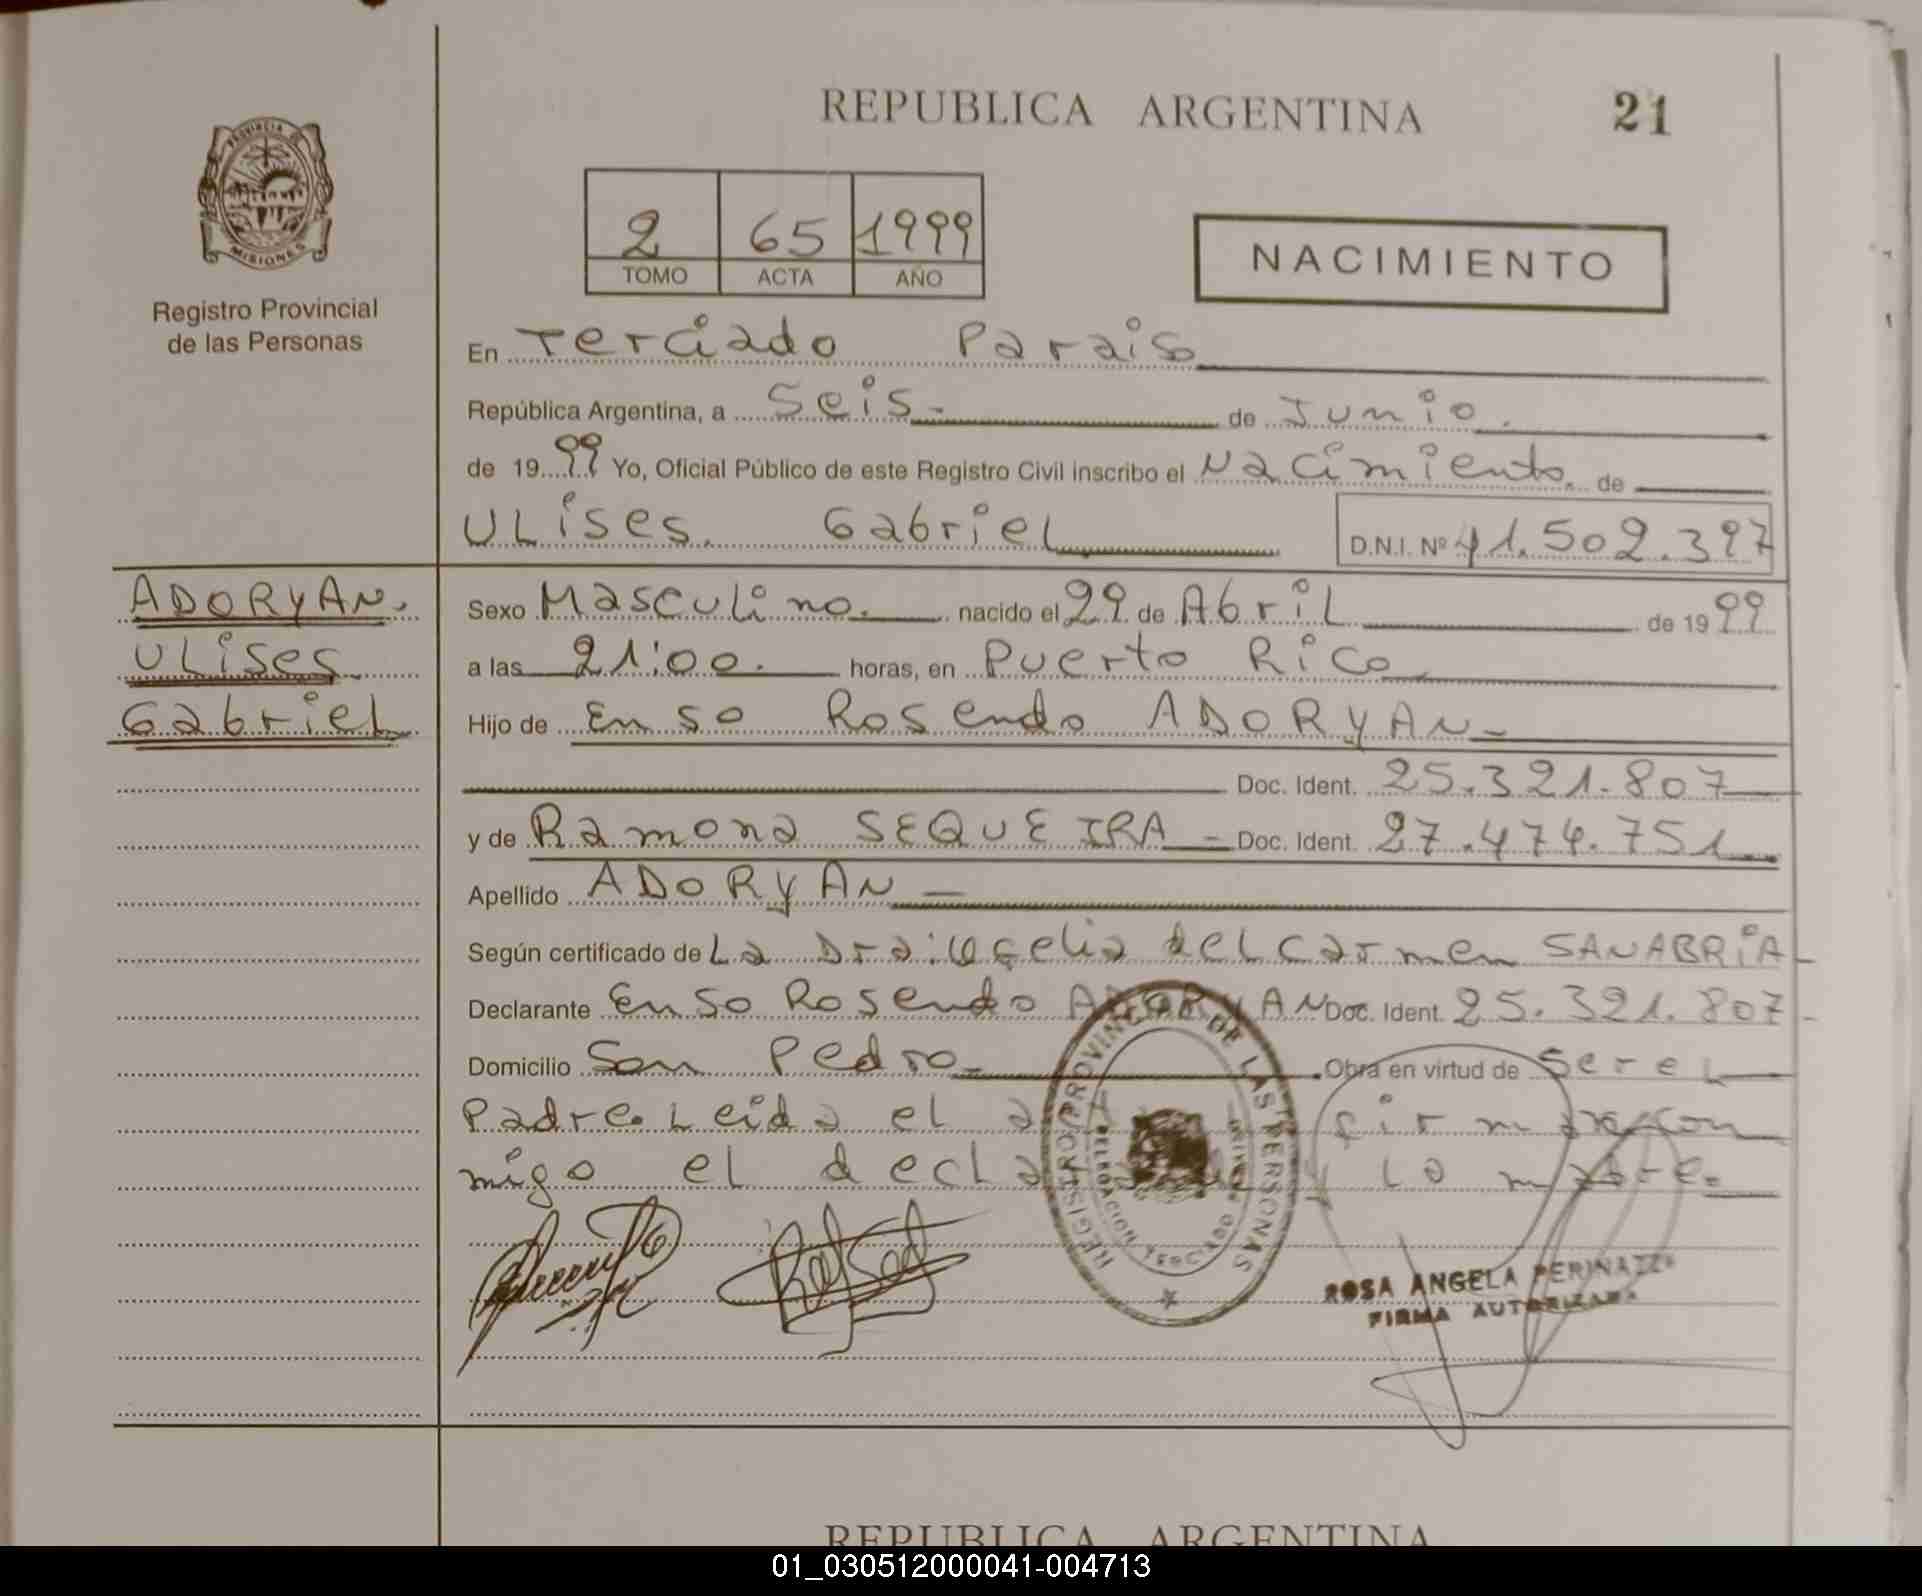 REPUBLICA ARGENTINA 21
PROVINCIA DE MISIONES
Registro Provincial
de las Personas
2 65 1999
TOMO ACTA AÑO
NACIMIENTO
En Terciado Paraiso
República Argentina, a Seis de Junio
de 1999 Yo, Oficial Público de este Registro Civil inscribo el Nacimiento de
Ulises Gabriel D.N.I. Nº 41.502.397
ADORYAN
Ulises
Gabriel
Sexo Masculino. nacido el 29 de Abril de 1999
a las 21:00. horas, en Puerto Rico
Hijo de Enso Rosendo ADORYAN
Doc. Ident. 25.321.807
y de Ramona SEQUEIRA Doc. Ident. 27.474.751
Apellido ADORYAN
Según certificado de La Dra: del Carmen SANABRIA
Declarante Enso Rosendo ADORYAN Doc. Ident. 25.321.807
Domicilio San Pedro Obra en virtud de Ser el
Padre. Leida el firman con
migo el y la madre.
REGISTRO PROVINCIAL DE LAS PERSONAS
DELEGACION TERCIADO
ROSA ANGELA
FIRMA AUTORIZADA
REPUBLICA ARGENTINA
01_030512000041-004713